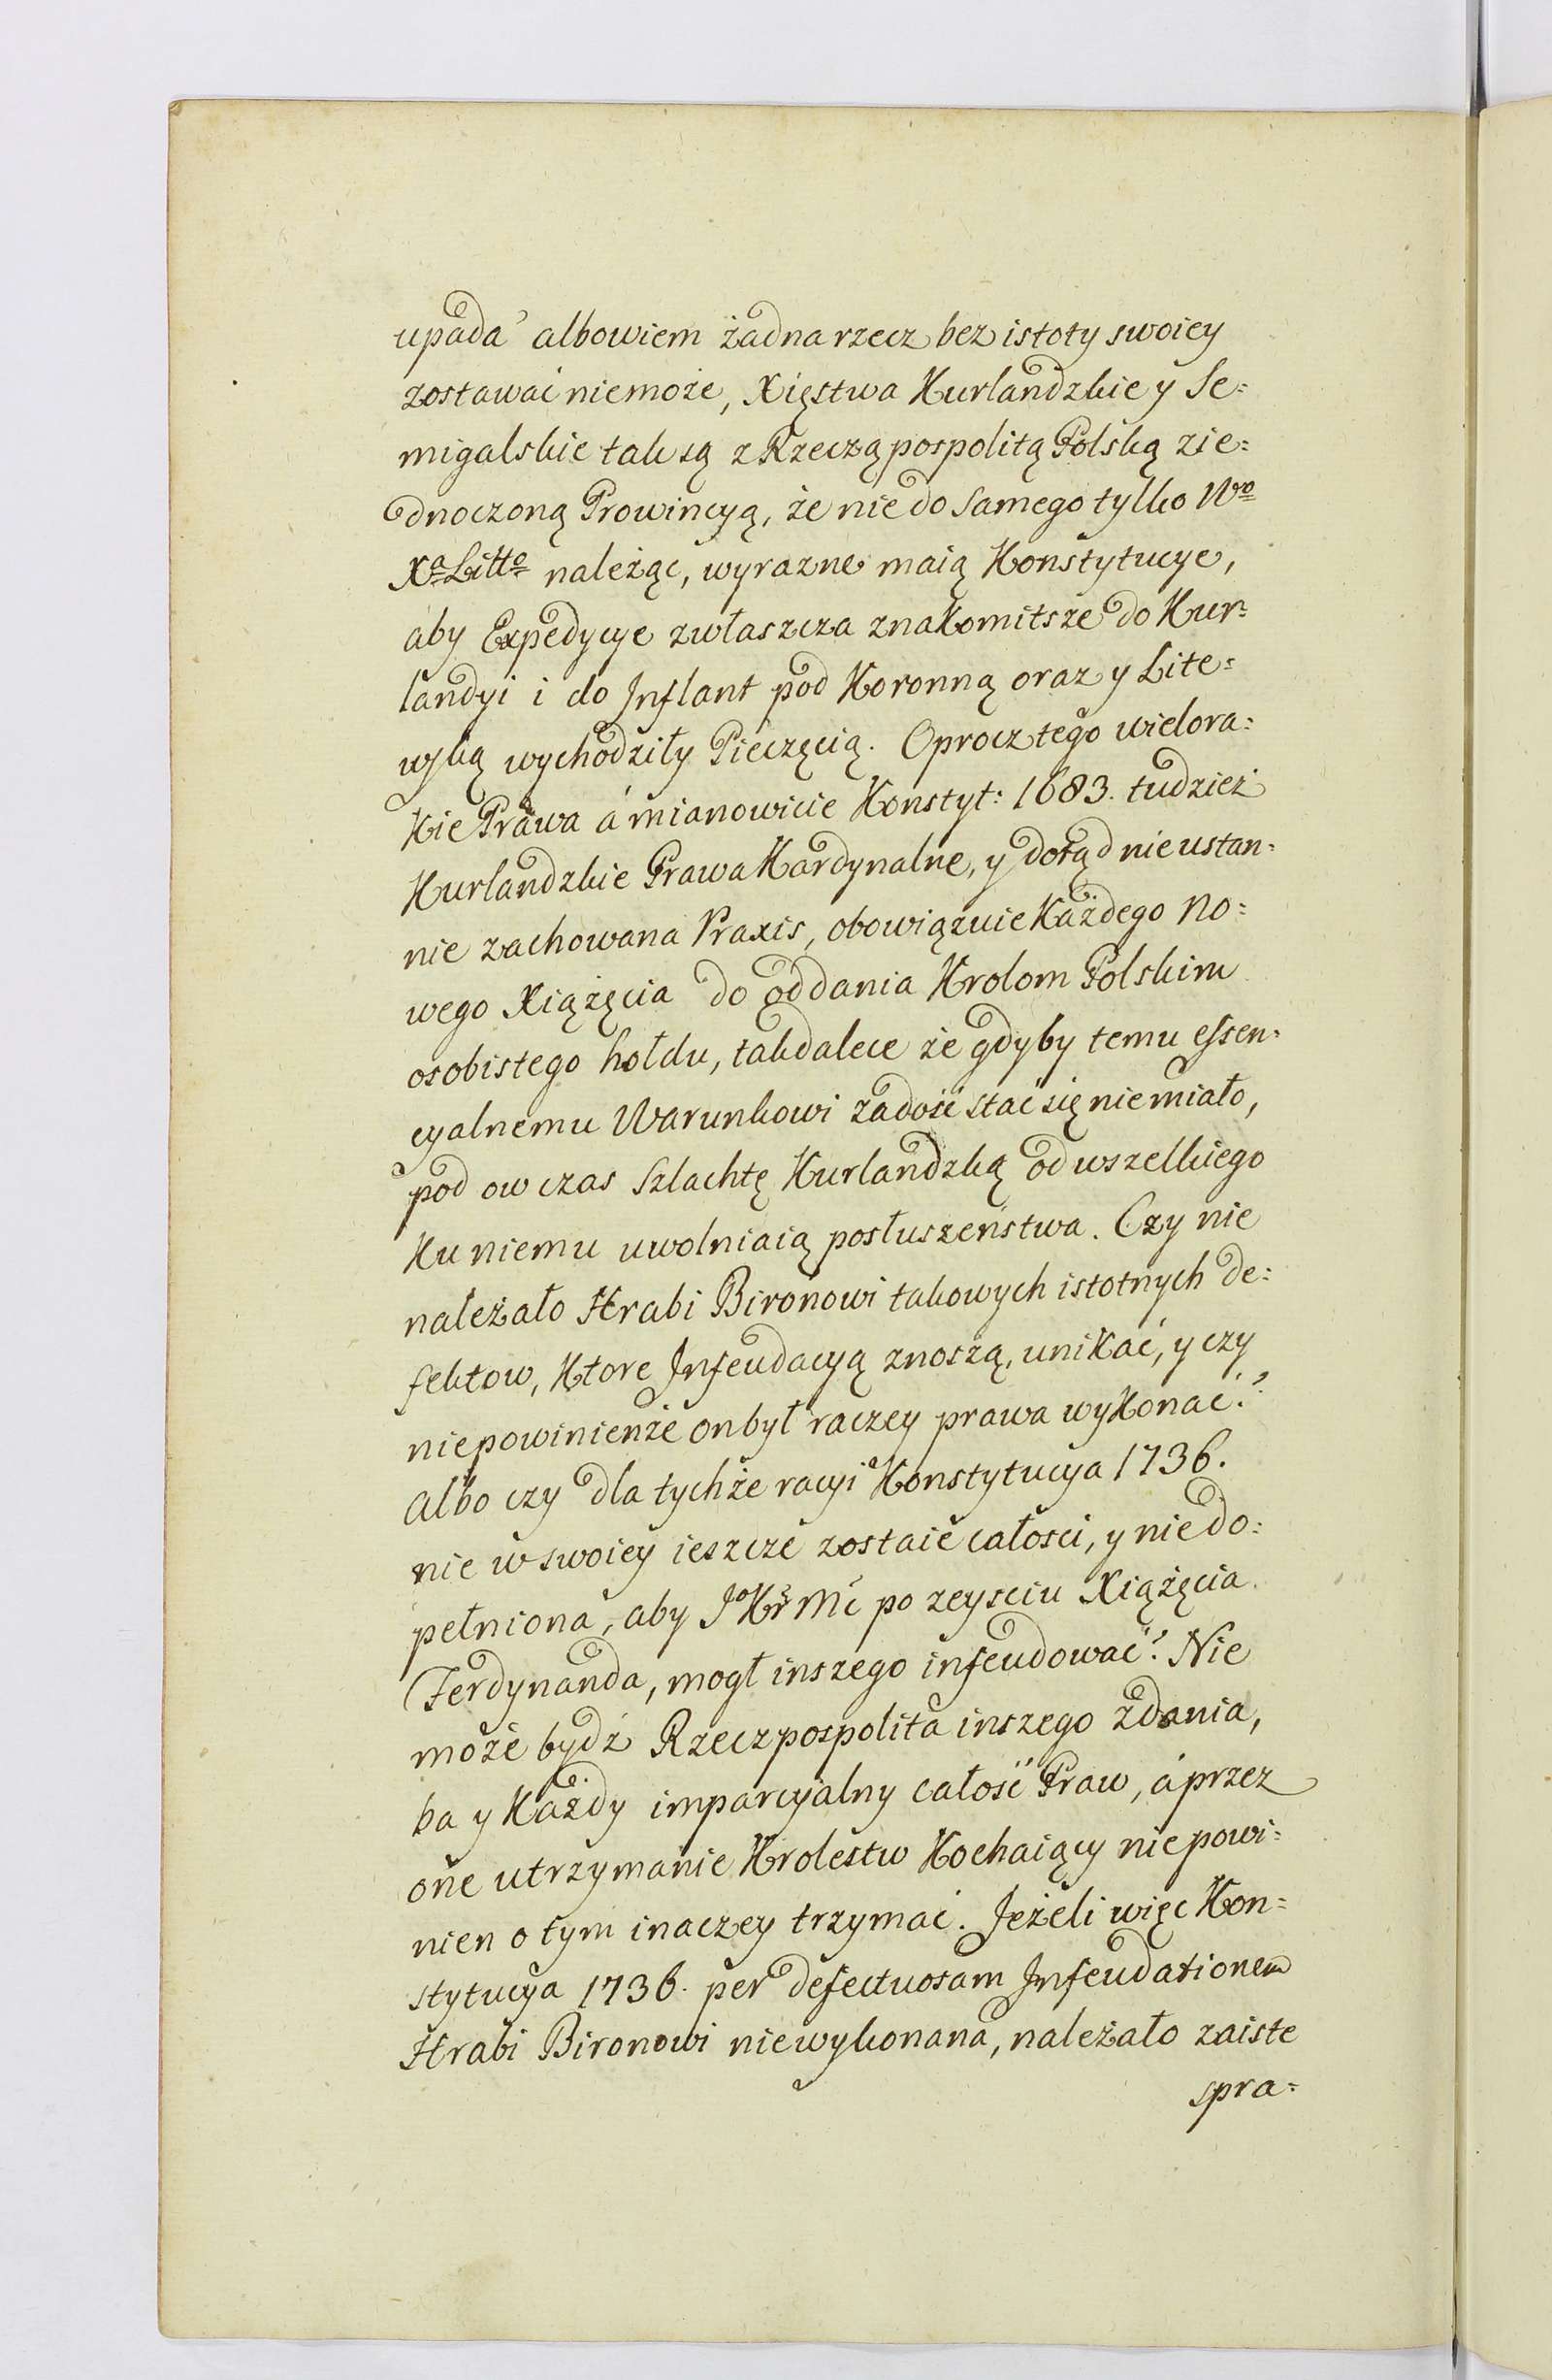 upada albowiem żadna rzecz bez istoty swoiey
zostawać niemoże, Xięstwa Kurlandzkie y Se=
migalskie tak są z Rzecząpospolitą Polską zie=
dnoczoną Prowincyą, że nie do samego tylko Wo
Xa Litto należąc, wyrazne maią Konstytucye,
aby Expedycye zwłaszcza znakomitsze do Kur=
landyi i do Inflant pod Koronną oraz y Lite=
wską wychodziły Pieczęcią. Oprocz tego wielora=
kie Prawa á mianowicie Konstyt: 1683. tudzież
Kurlandzkie Prawa Kardynalne, y dotąd nieustan=
nie zachowana Praxis, obowiązuie Każdego no=
wego Xiążęcia do oddania Krolom Polskim
osobistego hołdu, takdalece że gdyby temu essen=
cyalnemu Warunkowi zadość stać się niemiało,
pod ow czas Szlachtę Kurlandzką od wszelkiego
Ku niemu uwolniaią posłuszeństwa. Czy nie
należało Hrabi Bironowi takowych istotnych de=
fektow, Ktore Infeudacyą znoszą, unikać, y czy
niepowinienże on był raczey prawa wykonać?
Albo czy dla tychże racyi Konstytucya 1736.
nie w swoiey ieszcze zostaie całosci, y niedo=
pełniona, aby JoKr Mć po zeysciu Xiążęcia
Ferdynanda, mogł inszego infeudować? Nie
może bydź Rzeczpospolita inszego zdania,
ba y Każdy imparcyalny całość Praw, á przez
one utrzymanie Krolestw Kochaiący niepowi=
nien o tym inaczey trzymać. Jeżeli więc Kon=
stytucya 1736. per defectuosam Infeudationem
Hrabi Bironowi niewykonana, należało zaiste
spra=